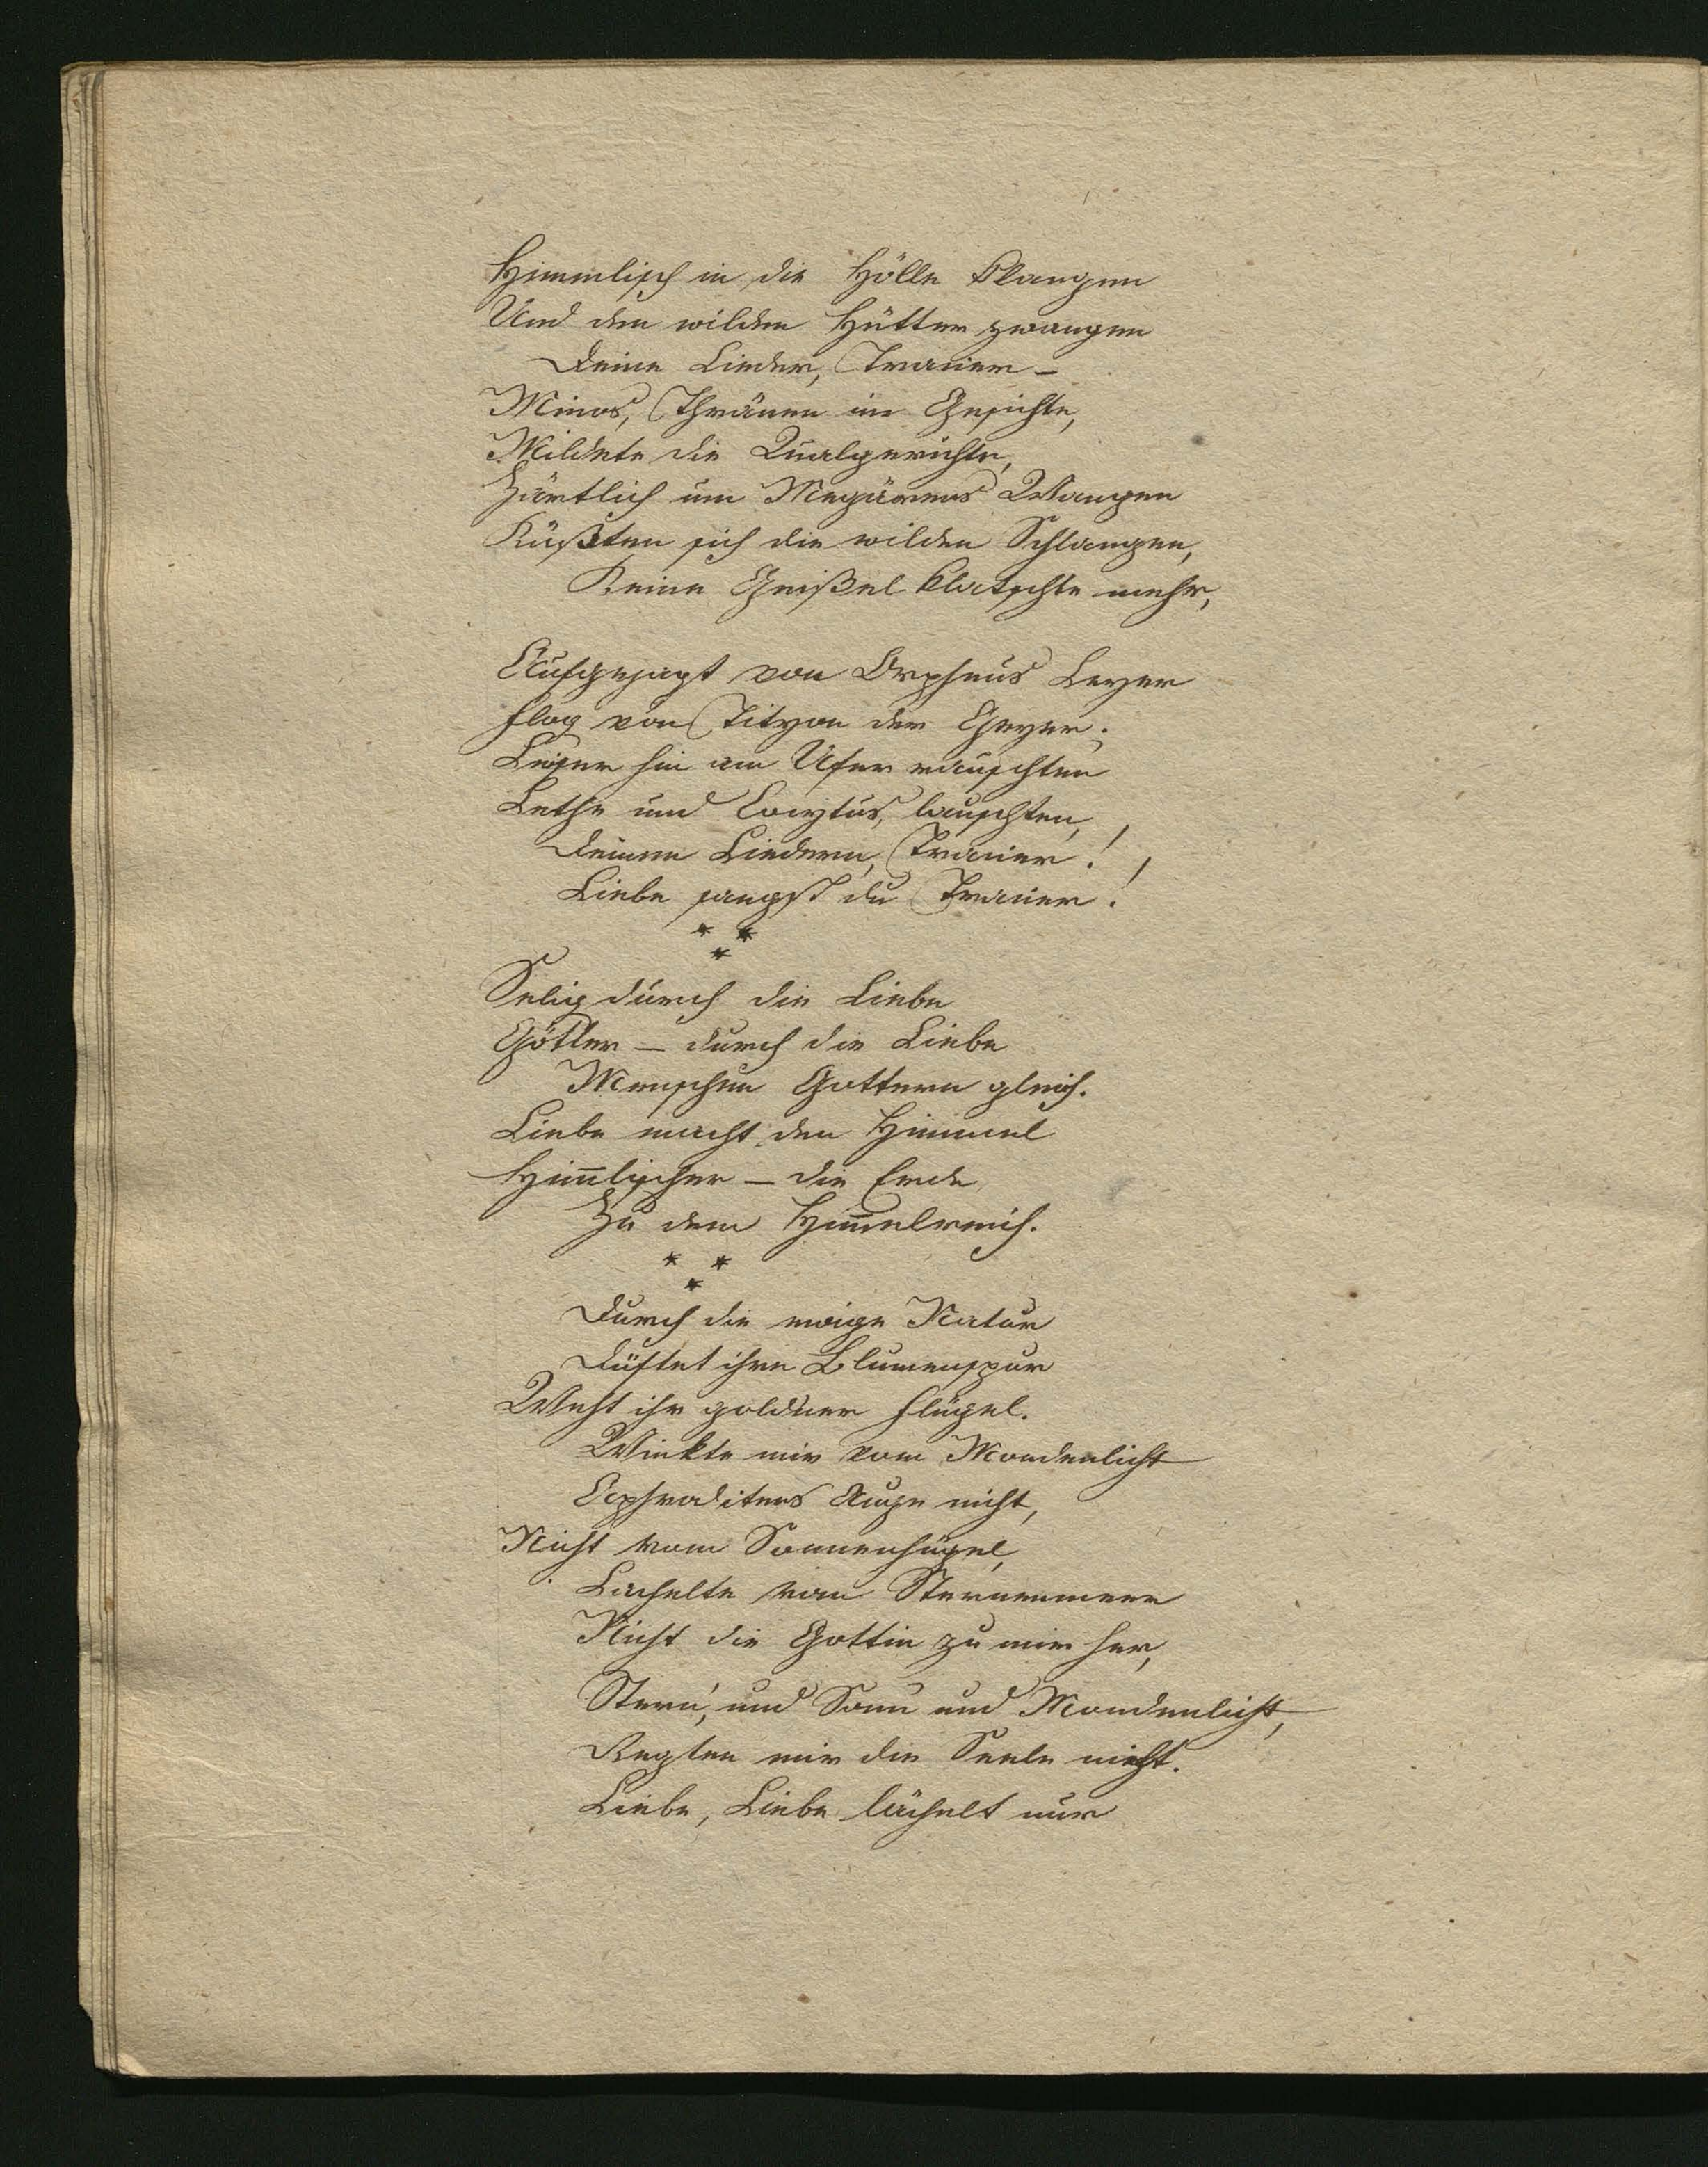 Himmlisch in die Hölle klangen
Und den wilden Hütter zwangen
Deine Lieder, Trazier –
Minos, Thränen im Gesichte,
Mildete die Qualgerichte,
Zärtlich um Megärens Wangen
Küßten sich die wilden Schlangen,
Keine Geißel klatschte mehr,
Aufgejagt von Orpheus Leyer
flog von Tityon der Geyer.
Leiser hin am Ufer rauschten
Lethe und Cocytus, lauschten,
Deinen Liedern, Trazier!
Liebe sangst du Trazier!
* *
*
Selig durch die Liebe
Götter – durch die Liebe
Menschen Gottern gleich.
Liebe macht den Himmel
Him̄lischer – die Erde
Zu dem Him̄elreich.
* *
*
Durch die ewige Natur
Düftet ihre Blumenspur
Weht ihr goldner Flügel.
Winkte mir vom Mondenlicht
Aphroditens Auge nicht,
Nicht vom Sonnenhügel,
Lachelte vom Sternenmeer
Nicht die Gottin zu mir her,
Stern', und Sonn und Mondenlicht,
Regten mir die Seele nicht.
Liebe, Liebe lächelt nur